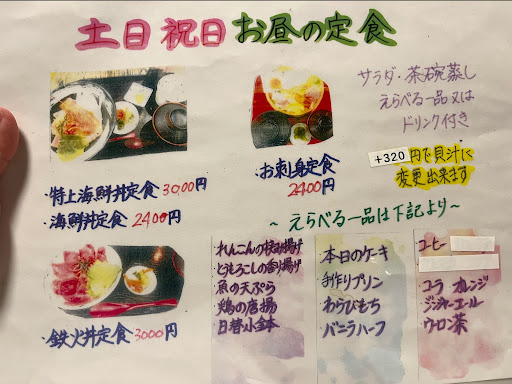 土日祝日 お昼の定食
サラダ・茶碗蒸し
えらべる一品又は
ドリンク付き
+320円で貝汁に
変更出来ます
・特上海鮮丼定食 3000円
・海鮮丼定食 2400円
・お刺身定食
2400円
・鉄火丼定食 3000円
~えらべる一品は下記より~
・れんこんの挟み揚げ
・とうもろこしの香り揚げ
・魚の天ぷら
・鶏の唐揚
・日替小鉢
・本日のケーキ
・手作りプリン
・わらびもち
・バニラハーフ
・コーヒー
・コーラ オレンジ
・ジンジャーエール
・ウーロン茶